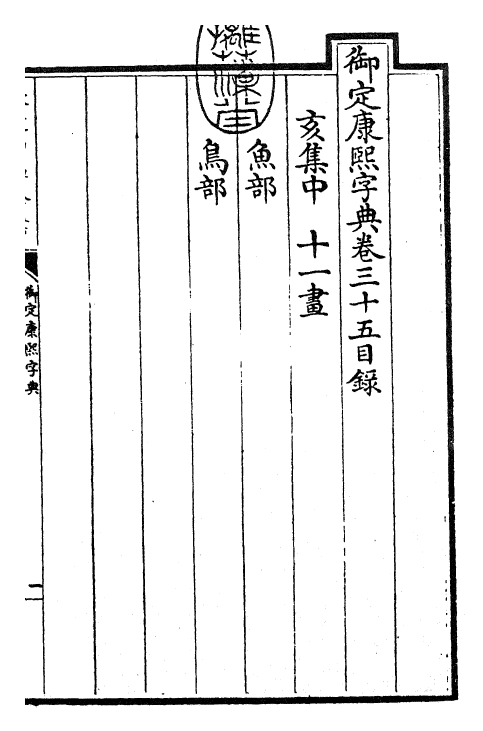 御定康熙字典卷三十五目錄
亥集中 十一畫
魚部
鳥部
御定康熙字典
一